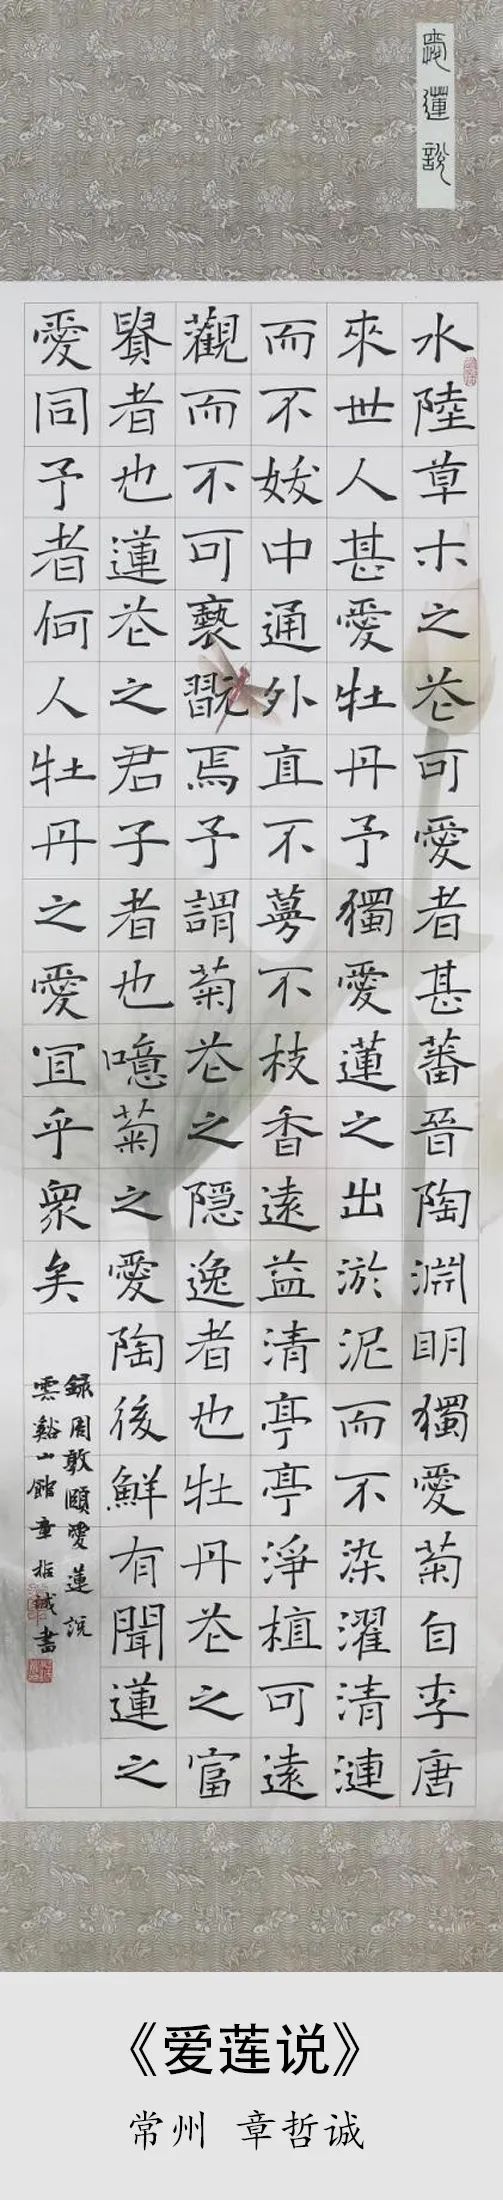 愛蓮說
水陸草木之花可愛者甚蕃晉陶淵明獨愛菊自李唐
來世人甚愛牡丹予獨愛蓮之出淤泥而不染濯清漣
而不妖中通外直不蔓不枝香遠益清亭亭淨植可遠
觀而不可褻翫焉予謂菊花之隱逸者也牡丹花之富
貴者也蓮花之君子者也噫菊之愛陶後鮮有聞蓮之
愛同予者何人牡丹之愛宜乎眾矣
錄周敦頤愛蓮說
雲谿山館章哲誠書
《爱莲说》
常州 章哲诚